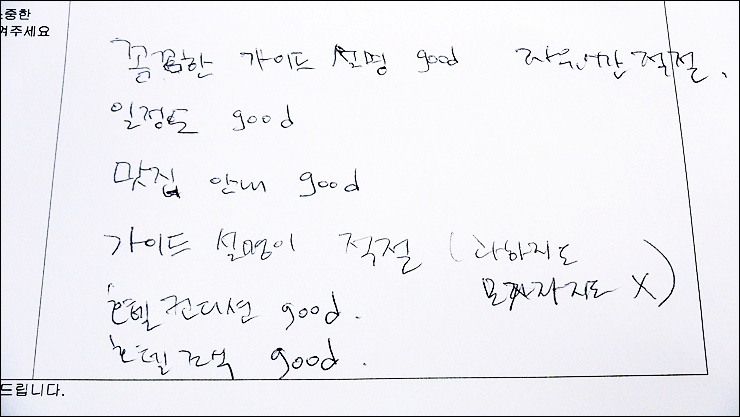 소중한
겨주세요
꼼꼼한 가이드 설명 good 자유시간 적절.
일정도 good
맛집 안내 good
가이드 설명이 적절 (과하지도
모자라지도 X)
호텔 컨디션 good.
호텔 조식 good.
드립니다.